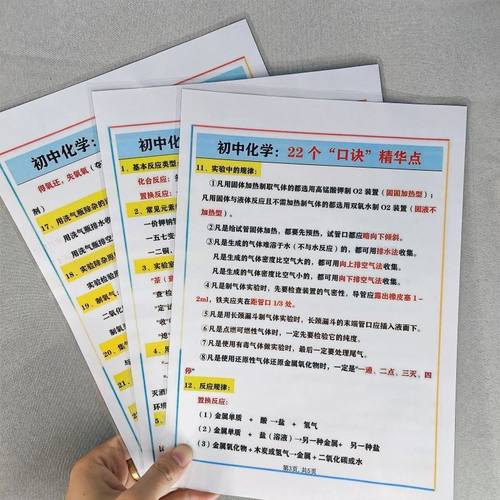 初中化学：
得氧还，失氧氧（
剂）
17、用洗气瓶除杂的
用洗气瓶排水收
用洗气瓶
18、实验除杂原
实验检验原
19、制氧气
二氧化
制氧气
20、集气
与
21、
初中化学：
1、基本反应类型：
化合反应：
置换反应：
2、常见元素
一价钾钠
一五七变
一二铜
3、实验室
"茶（
"查"检
"定"试
"收"收
灭酒
环境
5、
初中化学：22个“口诀”精华点
11、实验中的规律：
①凡用固体加热制取气体的都选用高锰酸钾制O2装置（固固加热型）；
凡用固体与液体反应且不需加热制气体的都选用双氧水制O2装置（固液不
加热型）。
②凡是给试管固体加热，都要先预热，试管口都应略向下倾斜。
③凡是生成的气体难溶于水（不与水反应）的，都可用排水法收集。
凡是生成的气体密度比空气大的，都可用向上排空气法收集。
凡是生成的气体密度比空气小的，都可用向下排空气法收集。
④凡是制气体实验时，先要检查装置的气密性，导管应露出橡皮塞1-
2ml，铁夹应夹在距管口1/3处。
⑤凡是用长颈漏斗制气体实验时，长颈漏斗的末端管口应插入液面下。
⑥凡是点燃可燃性气体时，一定先要检验它的纯度。
⑦凡是使用有毒气体做实验时，最后一定要处理尾气。
⑧凡是使用还原性气体还原金属氧化物时，一定是“一通、二点、三灭、四
停”
12、反应规律：
置换反应：
（1）金属单质 + 酸→盐 + 氢气
（2）金属单质 + 盐（溶液）→另一种金属+ 另一种盐
（3）金属氧化物+木炭或氢气→金属+二氧化碳或水
第3页，共5页